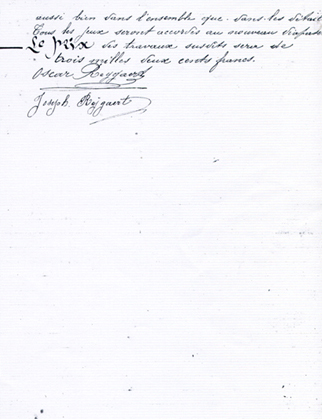 aussi bien dans l'ensemble que dans les détail
Tous les jeux seront accordés au nouveau diapason
Le prix des travaux susdits sera de
trois milles deux cents francs.
Oscar Reygaert
Joseph Reygaert